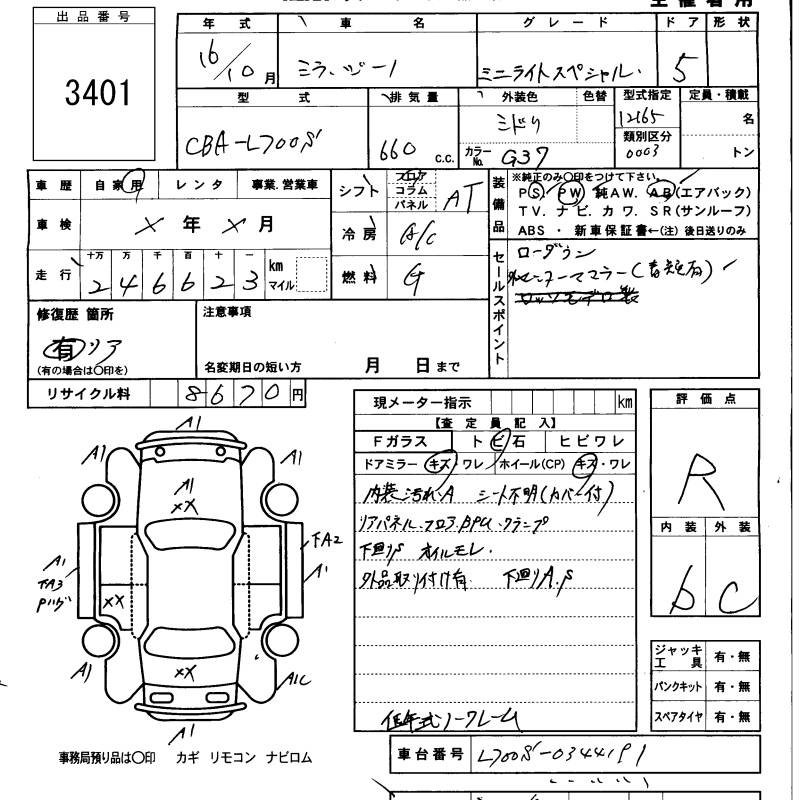 出品番号
3401
年式 車名 グレード ドア 形状
16/10月 ミラ・ジーノ ミニライトスペシャル 5
型式 排気量 外装色 色替 型式指定 定員・積載
CBA-L700S 660 c.c. ミドリ 12165 名
カラーNo. G37 類別区分 0003 トン
車歴 自家用 レンタ 事業.営業車
車検 × 年 × 月
走行 十万 万 千 百 十 一 km マイル
2 4 6 6 2 3
シフト フロア コラム パネル AT
冷房 A/C
燃料 G
装備品
※純正のみ〇印をつけて下さい。
PS. PW. 純AW. AB(エアバック)
TV. ナビ. カワ. SR(サンルーフ)
ABS ・ 新車保証書←(注) 後日送りのみ
セールスポイント
ローダウン
修復歴 箇所
有 リア
(有の場合は〇印を)
注意事項
名変期日の短い方 月 日まで
リサイクル料 8670円
現メーター指示 km
【査定員記入】
Fガラス トビ石 ヒビワレ
ドアミラー キズ・ワレ ホイール(CP) キズ・ワレ
内装汚れ.A シート不明(カバー付)
リアパネル・フロア.
下廻りS オイルモレ.
外品取り付け有 下廻りA.S
低年式ノークレーム
評価点
R
内装 外装
b C
ジャッキ工具 有・無
パンクキット 有・無
スペアタイヤ 有・無
A1
A1 A1
A1
××
TA2
A1 A1
TA3
××
××
A1 A1C
A1
事務局預り品は〇印 カギ リモコン ナビロム
車台番号 L700S-0344191